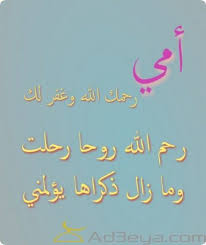 أمي
رحمك الله وغفر لك
رحم الله روحا رحلت
وما زال ذكراها يؤلمني
Ad3eya.com